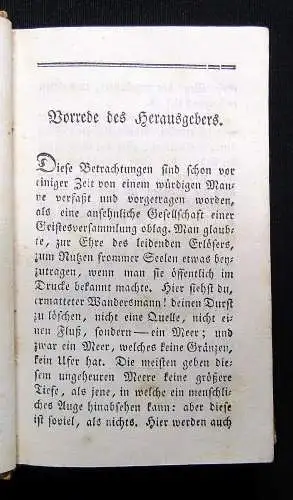 Vorrede des Herausgebers.
Diese Betrachtungen sind schon vor
einiger Zeit von einem würdigen Man-
ne verfaßt und vorgetragen worden,
als eine ansehnliche Gesellschaft einer
Geistesversammlung oblag. Man glaub-
te, zur Ehre des leidenden Erlösers,
zum Nutzen frommer Seelen etwas bey-
zutragen, wenn man sie öffentlich im
Drucke bekannt machte. Hier siehst du,
ermatteter Wandersmann! deinen Durst
zu löschen, nicht eine Quelle, nicht ei-
nen Fluß, sondern — ein Meer; und
zwar ein Meer, welches keine Gränzen,
kein Ufer hat. Die meisten geben die-
sem ungeheuren Meere keine größere
Tiefe, als jene, in welche ein menschli-
ches Auge hinabsehen kann: aber diese
ist soviel, als nichts. Hier werden auch